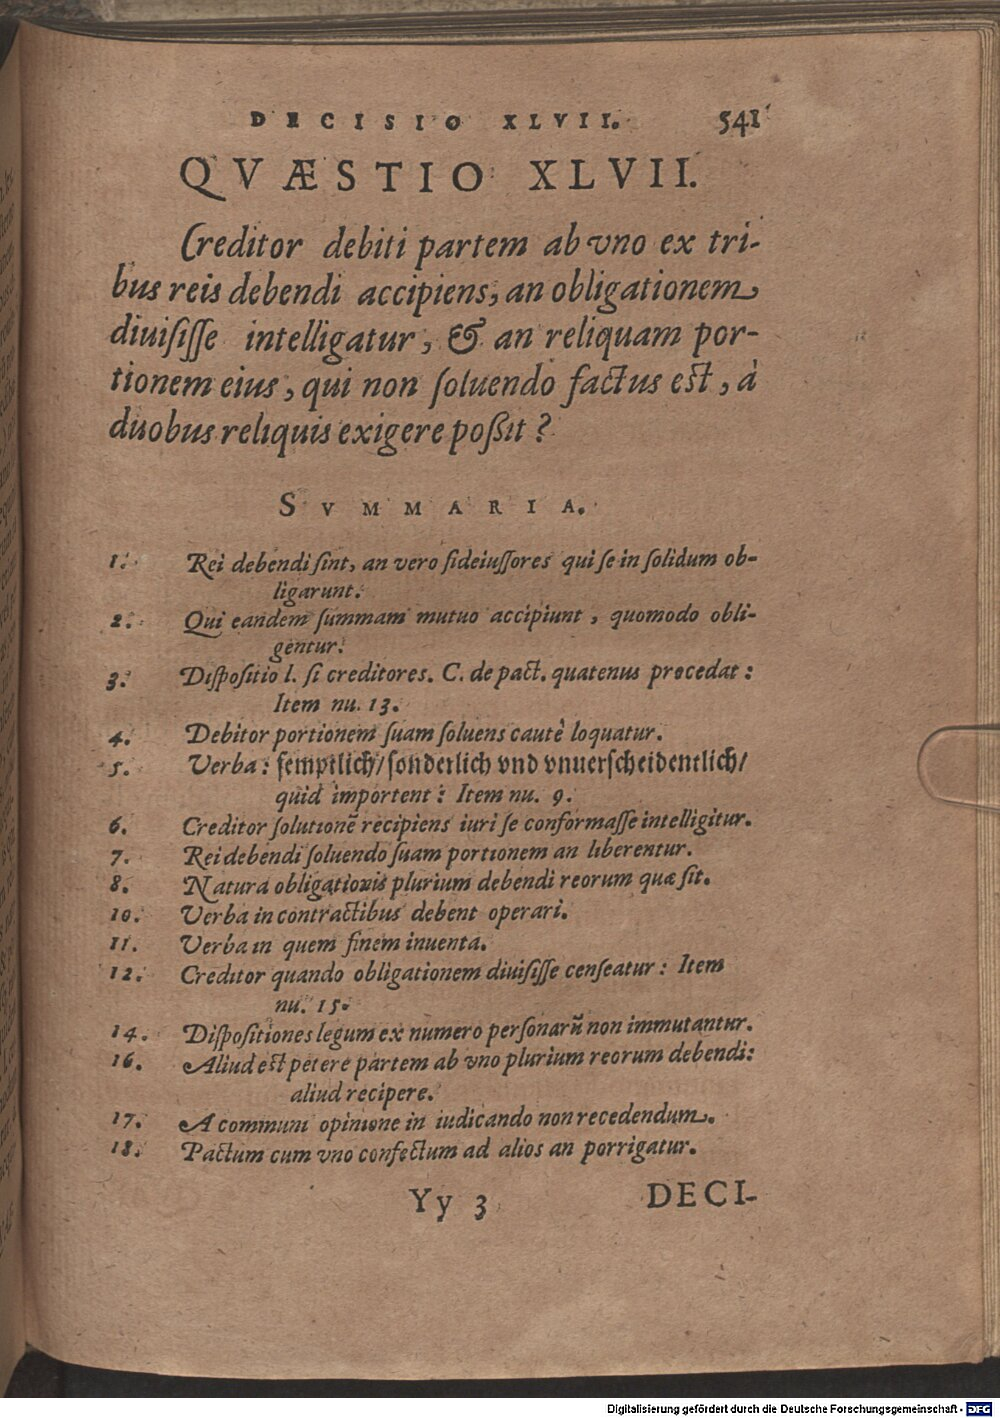 DECISIO XLVII. 541
QVÆSTIO XLVII.
Creditor debiti partem ab vno ex tri-
bus reis debendi accipiens, an obligationem
diuiſiſſe intelligatur, & an reliquam por-
tionem eius, qui non ſoluendo factus est, à
duobus reliquis exigere poßit?
SVMMARIA.
1. Rei debendi ſint, an vero fideiuſſores qui ſe in ſolidum ob-
ligarunt.
2. Qui eandem ſummam mutuo accipiunt, quomodo obli-
gentur.
3. Diſpoſitio l. ſi creditores. C. de pact. quatenus procedat:
Item nu. 13.
4. Debitor portionem ſuam ſoluens cautè loquatur.
5. Verba: ſemptlich/ ſonderlich vnd vnuerſcheidentlich/
quid importent: Item nu. 9.
6. Creditor ſolutionē recipiens iuri ſe conformaſſe intelligitur.
7. Rei debendi ſoluendo ſuam portionem an liberentur.
8. Natura obligationis plurium debendi reorum quæ ſit.
10. Verba in contractibus debent operari.
11. Verba in quem finem inuenta.
12. Creditor quando obligationem diuiſiſſe cenſeatur: Item
nu. 15.
14. Diſpoſitiones legum ex numero perſonarū non immutantur.
16. Aliud est petere partem ab vno plurium reorum debendi:
aliud recipere.
17. A communi opinione in iudicando non recedendum.
18. Pactum cum vno confectum ad alios an porrigatur.
Yy 3 DECI-
Digitalisierung gefördert durch die Deutsche Forschungsgemeinschaft - DFG